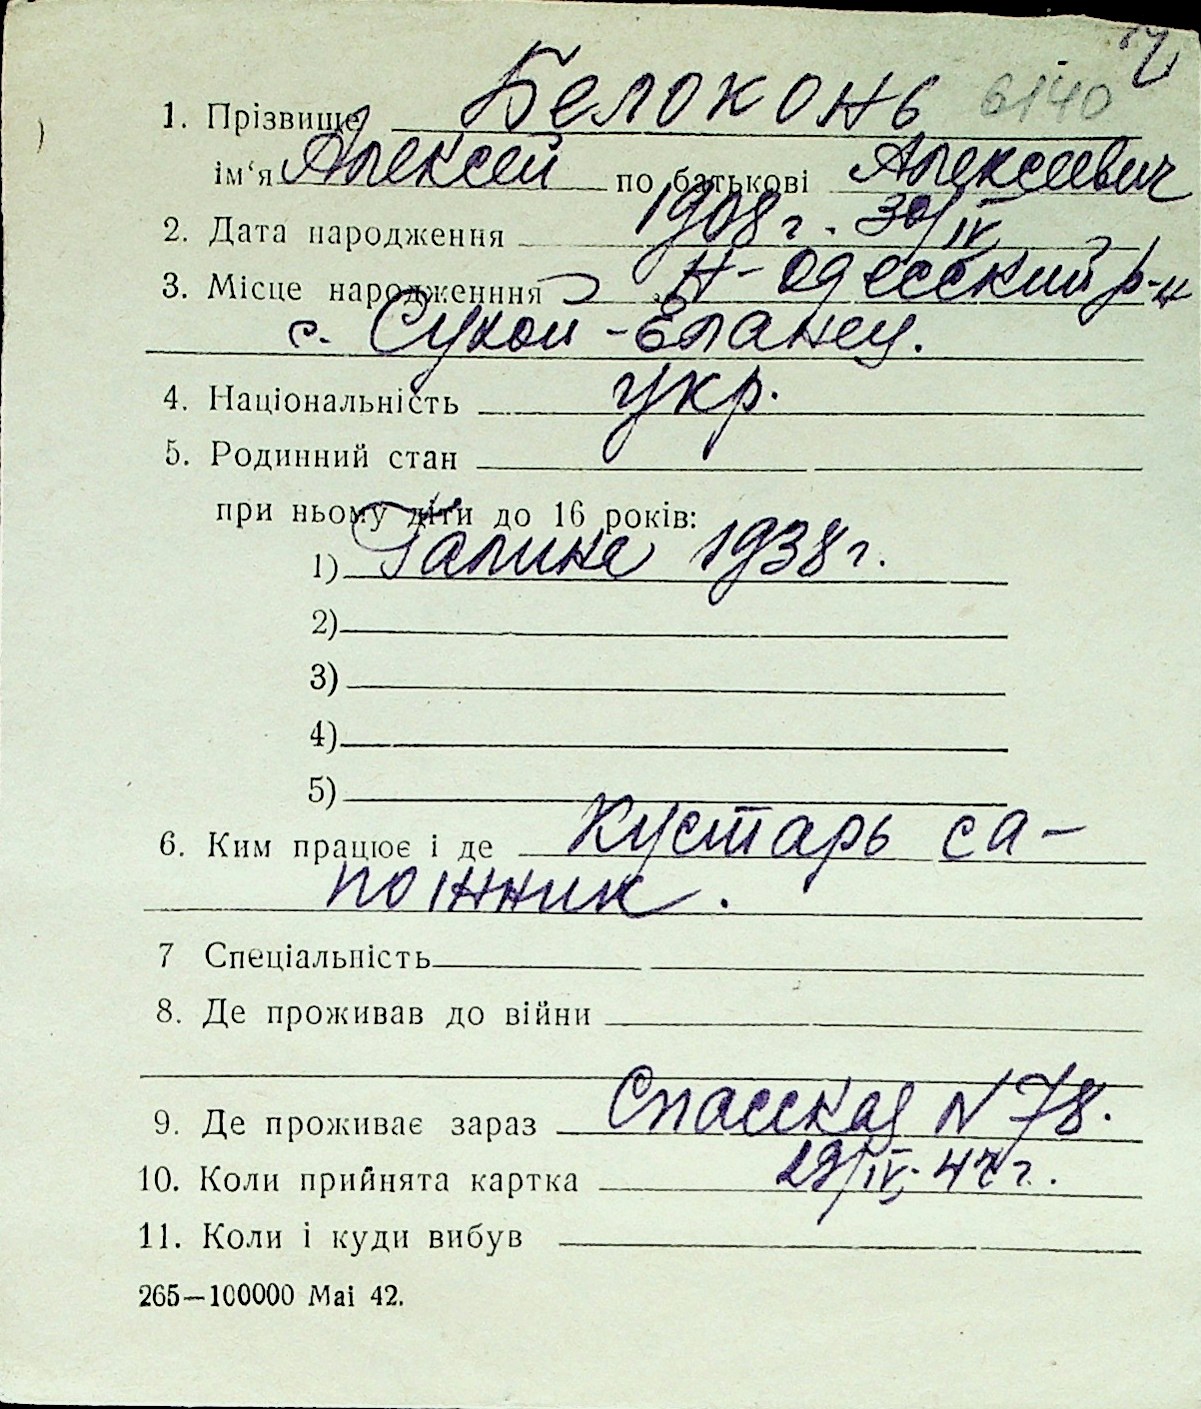 1. Прізвище Белоконь 6140
ім'я Алексей по батькові Алексеевич
2. Дата народження 1908 г. 30/IV
3. Місце народженння Н-Одесский р-н
с. Сухой-Еланец.
4. Національність укр.
5. Родинний стан
при ньому діти до 16 років:
1) Галина 1938 г.
2)
3)
4)
5)
6. Ким працює і де Кустарь са-
пожник.
7 Спеціальність
8. Де проживав до війни
9. Де проживає зараз Спасская N 78.
10. Коли прийнята картка
11. Коли і куди вибув
265—100000 Маі 42.